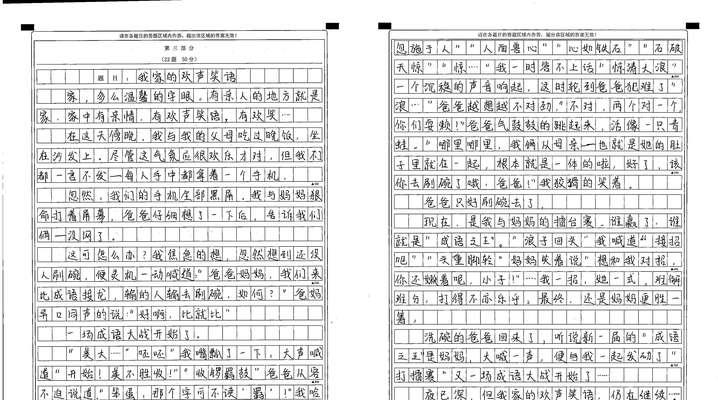 请在各题目的答题区域内作答，超出该区域的答案无效！
第三部分
（22题 50分）
题目：我家的欢声笑语
家，多么温馨的字眼，有亲人的地方就是
家，家中有亲情，有欢声笑语，有欢笑…
在这天傍晚，我与我的父母吃过晚饭，坐
在沙发上，尽管这气氛应很欢乐才对，但我们
都一言不发—每人手中都拿着一个手机。
忽然，我们的手机全部黑屏，我与妈妈狠
命打着屏幕，爸爸仔细想了一下后，告诉我们
俩—没网了。
这可怎么办？我焦急的想，忽然想到还没
人刷碗，便灵机一动喊道“爸爸妈妈，我们来
比成语接龙，输的人输去刷碗，如何？”爸妈
异口同声的说：“好啊，比就比”
一场成语大战开始了。
“吴大…”“呸呸”我嘴瓢了一下，大声喊
道“开始！美不胜收！”“收锣罢鼓”爸爸从容
不迫说道“笨蛋，那个字可不读‘罢’！”我哈
请在各题目的答题区域内作答，超出该区域的答案无效！
忽施于人”“人面兽心”“心如铁石”“石破
天惊”“惊…”“我一时答不上话”“惊涛大浪？
一个沉稳的声音响起，这时轮到爸爸犯难了”
浪…“爸爸越想越不对劲”不对，两个对一个
你们耍赖！”爸爸气鼓鼓的跳起来，活像一只青
蛙。“哪里哪里，我俩从母亲一也就是她的肚
子里就在一起，根本就是一体的啦，好了，该
你去刷碗了哦，爸爸！”我狡猾的笑着。
爸爸只好刷碗去了
现在，是我与妈妈的擂台赛。谁赢了，谁
就是“成语之王”。“浪子回头”我喊道“接招
吧”“头重脚轻”妈妈笑着说”想和我对招，
你还嫩着呢，小子！”…我一招，她一式，难解
难分，打得不亦乐乎。最终，还是妈妈更胜一
着。
洗碗的爸爸回来了，听说新一届的“成语
之王”是妈妈，大喊一声，便与我一起发动了“
打擂赛”又一场成语大战开始了…
夜已深，但我家的欢声笑语，仍在继续…